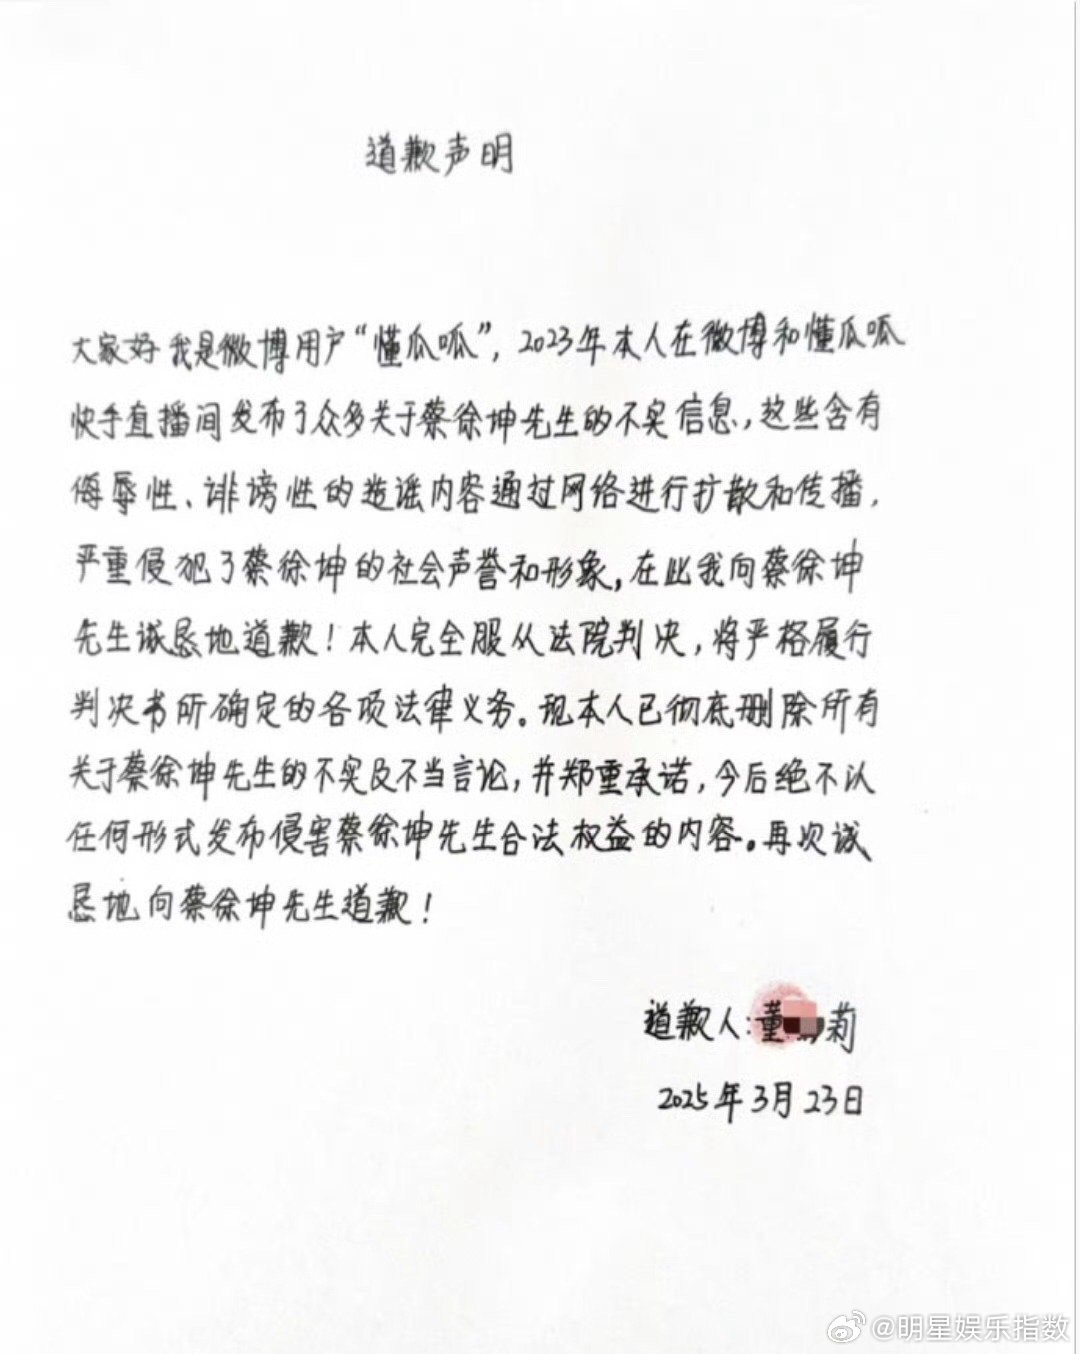 道歉声明
大家好我是微博用户“懂瓜呱”，2023年本人在微博和懂瓜呱
快手直播间发布了众多关于蔡徐坤先生的不实信息，这些含有
侮辱性、诽谤性的造谣内容通过网络进行扩散和传播，
严重侵犯了蔡徐坤的社会声誉和形象，在此我向蔡徐坤
先生诚恳地道歉！本人完全服从法院判决，将严格履行
判决书所确定的各项法律义务。现本人已彻底删除所有
关于蔡徐坤先生的不实及不当言论，并郑重承诺，今后绝不以
任何形式发布侵害蔡徐坤先生合法权益的内容。再次诚
恳地向蔡徐坤先生道歉！
道歉人：董 莉
2025年3月23日
@明星娱乐指数